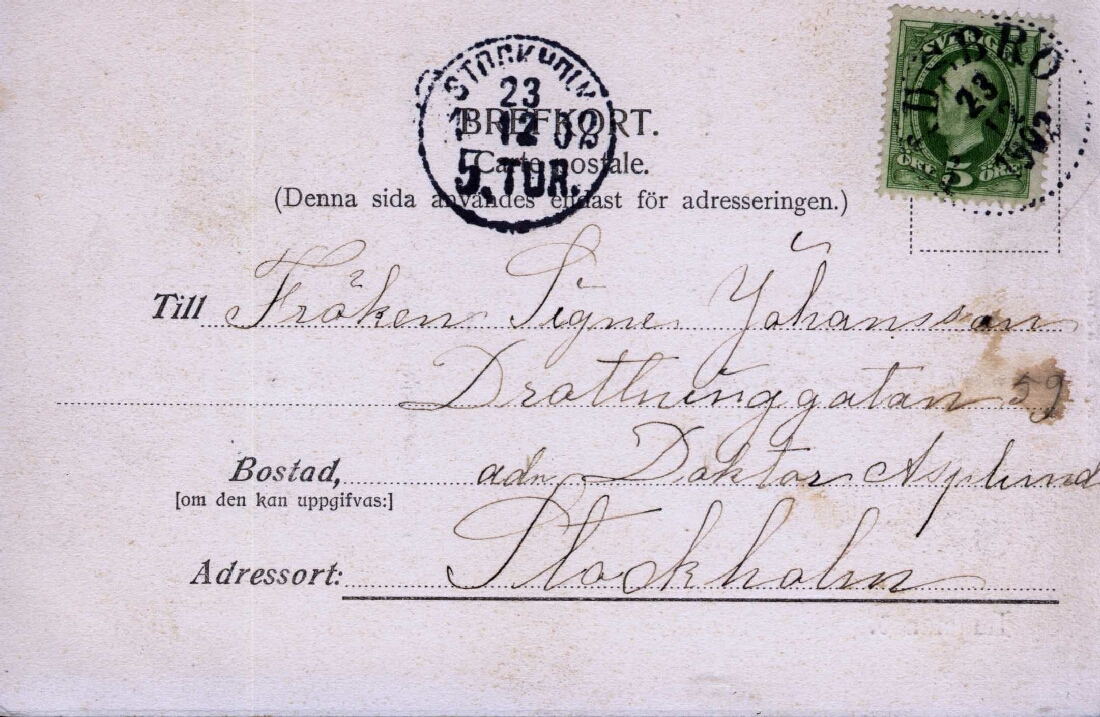 STOCKHOLM
23
12 02
5.TUR.
SVERIGE
BRO
23
1902
ÖRE 5 ÖRE
BREFKORT.
Carte postale.
(Denna sida användes endast för adresseringen.)
Till Fröken Signe Johansson
Drottninggatan 59
Bostad, adr. Doktor Asplund
[om den kan uppgifvas:]
Adressort: Stockholm